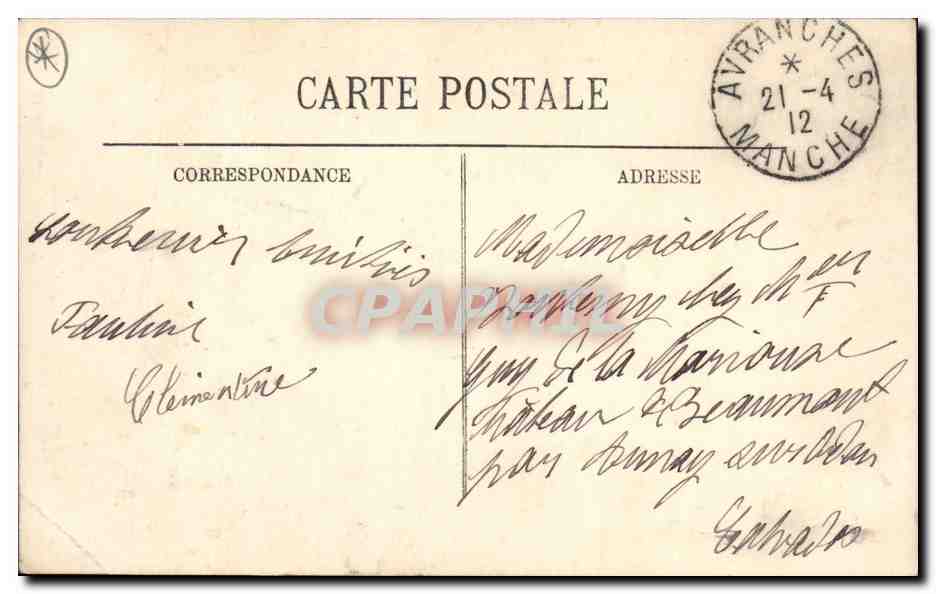 CARTE POSTALE
AVRANCHES
*
21 -4
12
MANCHE
CORRESPONDANCE
amitiés
Pauline
Clémentine
ADRESSE
Mademoiselle
chez Mme
Guy de la
Château de Beaumont
par Aunay sur Odon
Calvados
CPAPHIL